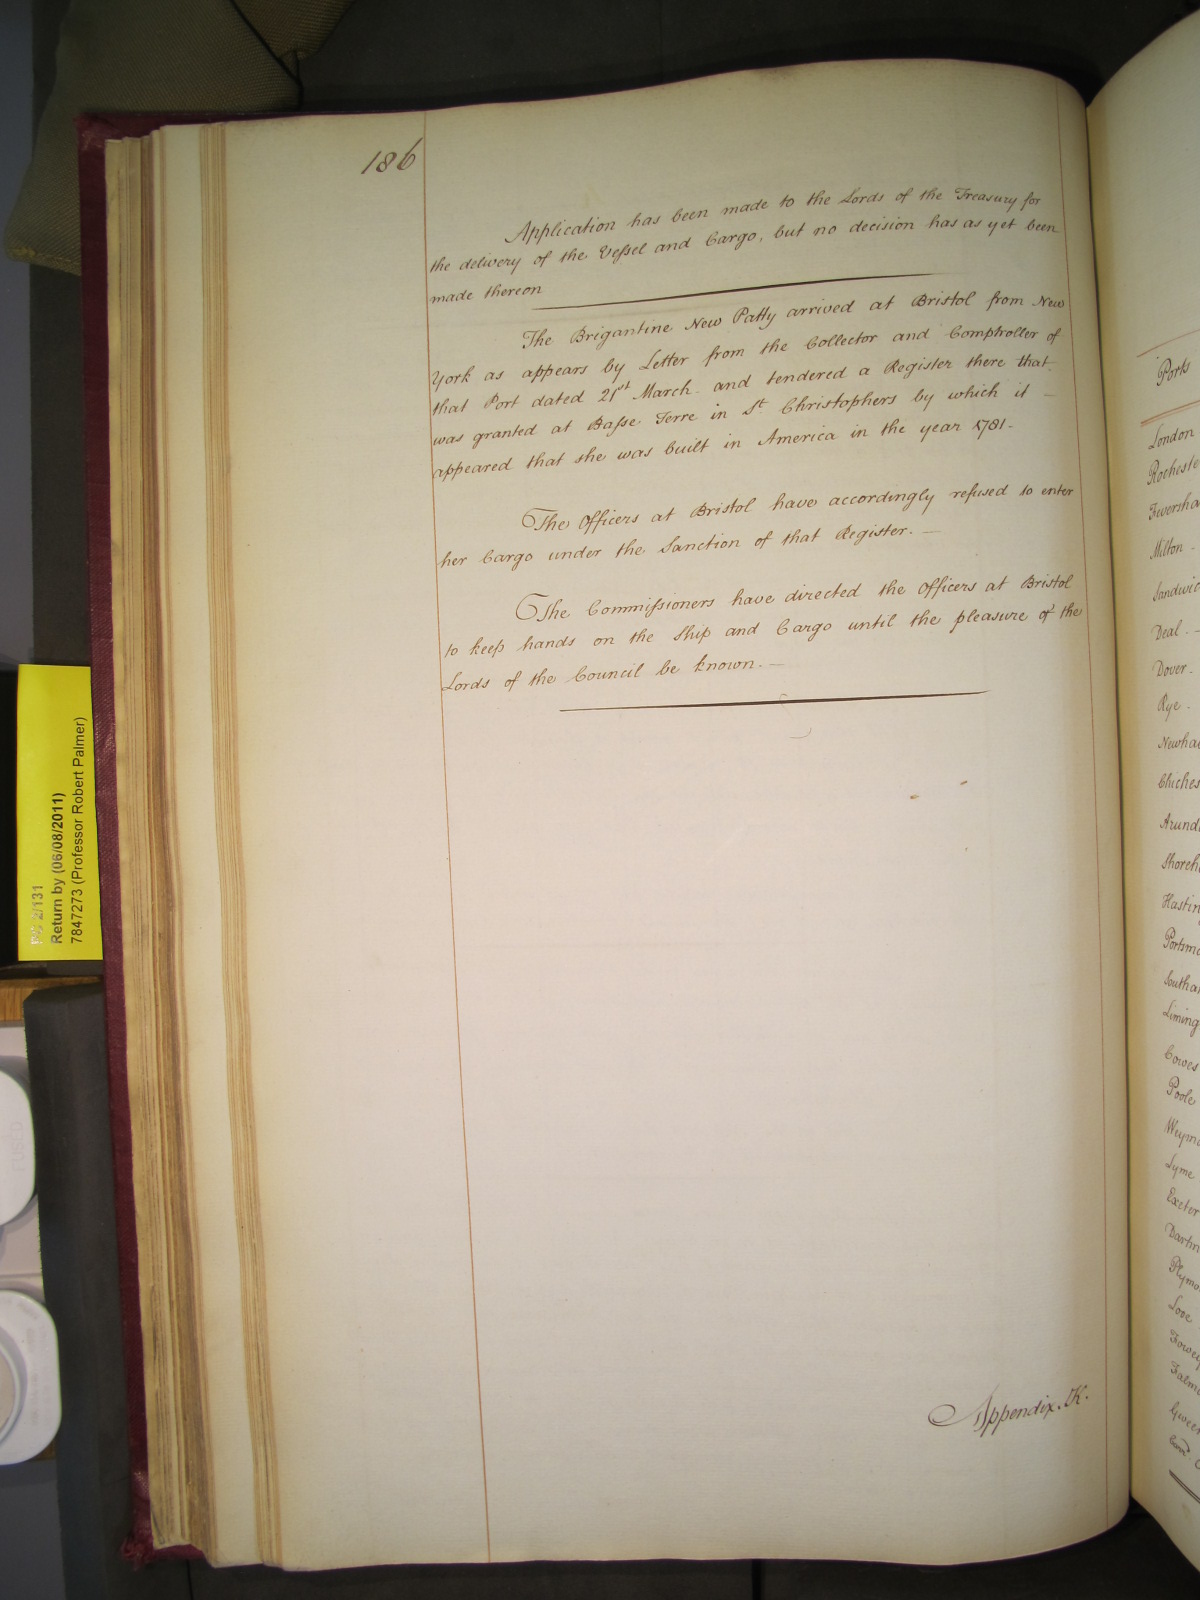 186
Application has been made to the Lords of the Treasury for
the delivery of the Vessel and Cargo, but no decision has as yet been
made thereon
The Brigantine New Patty arrived at Bristol from New
York as appears by Letter from the Collector and Comptroller of
that Port dated 21st March. and tendered a Register there that.
was granted at Basse Terre in St. Christophers by which it —
appeared that she was built in America in the year 1781.
The Officers at Bristol have accordingly refused to enter
her Cargo under the Sanction of that Register. —
The Commissioners have directed the Officers at Bristol
to keep hands on the Ship and Cargo until the pleasure of the
Lords of the Council be known. —
Appendix. K.
PC 2/131
Return by (06/08/2011)
7847273 (Professor Robert Palmer)
Ports
London
Rocheste
Feversha
Milton -
Sandwic
Deal. -
Dover.
Rye -
Newha
Chiches
Arund
Shoreh
Hastin
Portsmo
Southa
Liming
Cowes
Poole
Weymo
Lyme
Exeter
Dartm
Plymo
Looe
Fowey
Falmo
Gwee